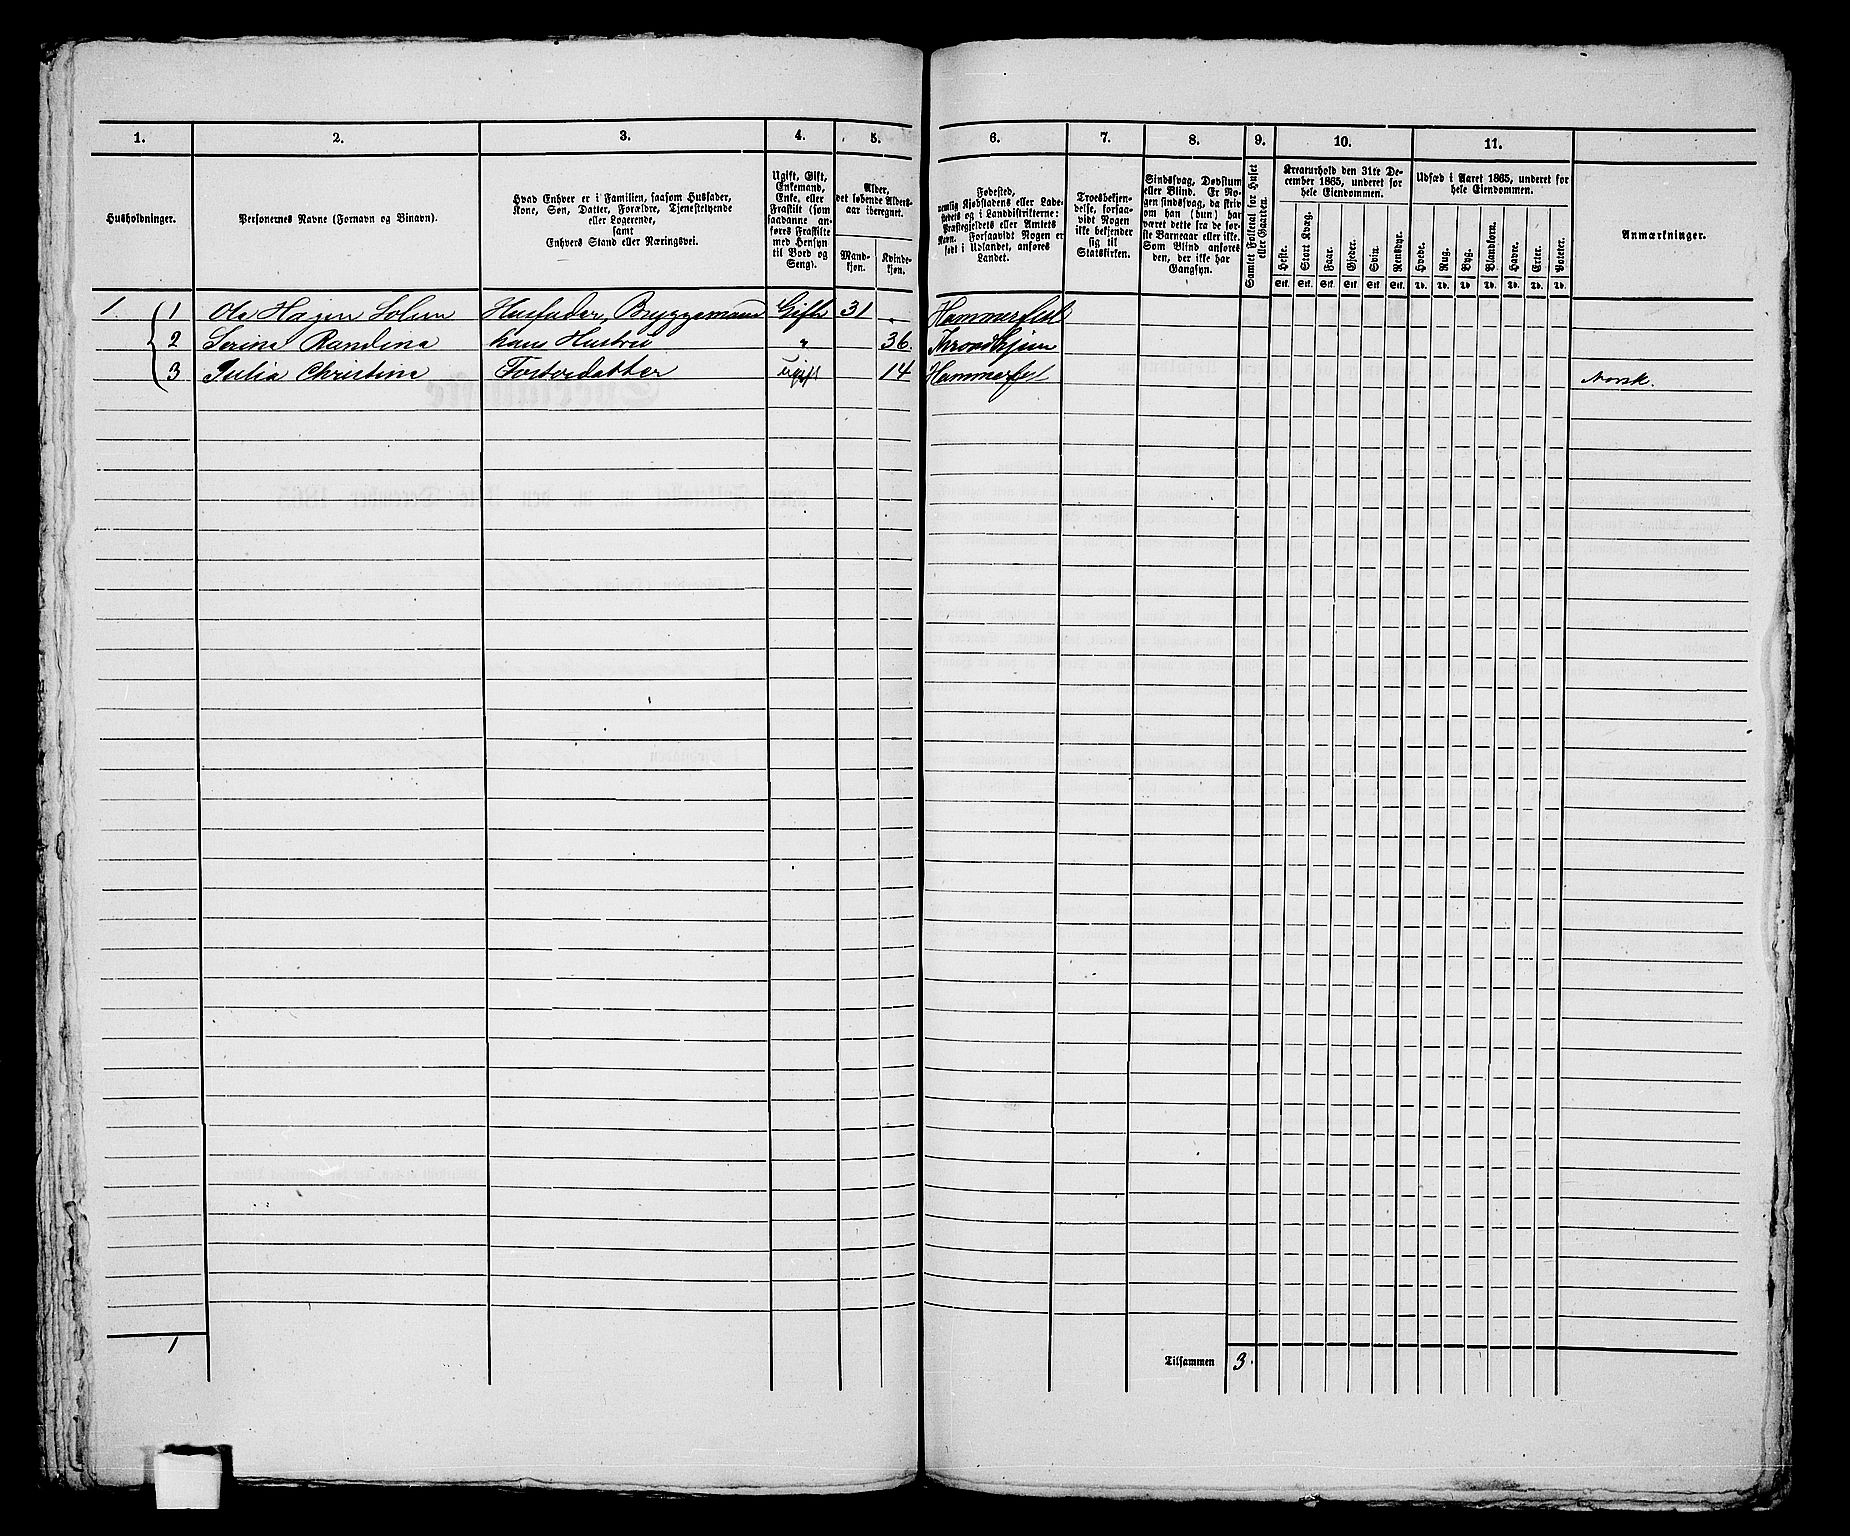 1.
2.
3.
4.
5.
6.
7.
8.
9.
10.
11.
Husholdninger.
Personernes Navne (Fornavn og Binavn).
Hvad Enhver er i Familien, saasom Husfader,
Kone, Søn, Datter, Forældre, Tjenestetyende
eller Logerende,
samt
Enhvers Stand eller Næringsvei.
Ugift, Gift,
Enkemand,
Enke, eller
Fraskilt (som
saadanne an-
føres Fraskilte
med Hensyn
til Bord og
Seng).
Alder,
det løbende Alders-
aar iberegnet.
Mand-
kjøn.
Kvinde-
kjøn.
Fødested,
nemlig Kjøbstadens eller Lade-
stedets og i Landdistrikterne:
Præstegjeldets eller Amtets
Navn. Forsaavidt Nogen er
født i Udlandet, anføres
Landet.
Troesbekjen-
delse, forsaa-
vidt Nogen
ikke bekjender
sig til
Statskirken.
Sindssvag, Døvstum
eller Blind. Er No-
gen sindssvag, da skriv
om han (hun) har
været dette fra de før-
ste Barneaar eller ikke.
Som Blind anføres
den, der ikke har
Gangsyn.
Samlet Folketal for Huset
eller Gaarden.
Kreaturhold den 31te De-
cember 1865, underet for
hele Eiendommen.
Heste.
Stort Kvæg.
Faar.
Gjeder.
Svin.
Rensdyr.
Stk. Stk. Stk. Stk. Stk. Stk.
Udsæd i Aaret 1865, underet for
hele Eiendommen.
Hvede.
Rug.
Byg.
Blandkorn.
Havre.
Erter.
Poteter.
Td. Td. Td. Td. Td. Td. Td.
Anmærkninger.
1 1 Ole Hagen Solem Husfader, Bryggemand Gift 31 Hammerfest
2 Serina Randina hans Hustru " 36. Throndhjem
3 Julia Christina Fosterdatter ugift 14 Hammerfest Norsk.
1
Tilsammen 3.